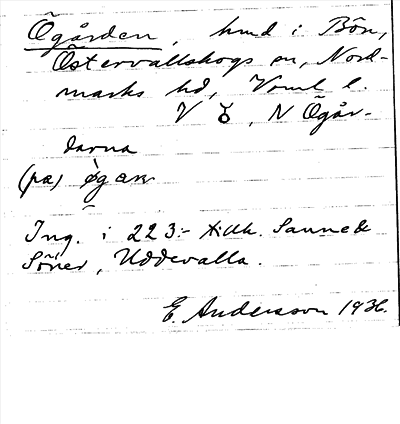 Ögården, hmd i Bön,
Östervallskogs sn, Nord-
marks hd, Vrml l.
V Ö, N Ögår-
darna
(pa) øgaɳ
Ing. i 223:- tillh. Sanne &
Söner, Uddevalla.
E. Andersson 1936.